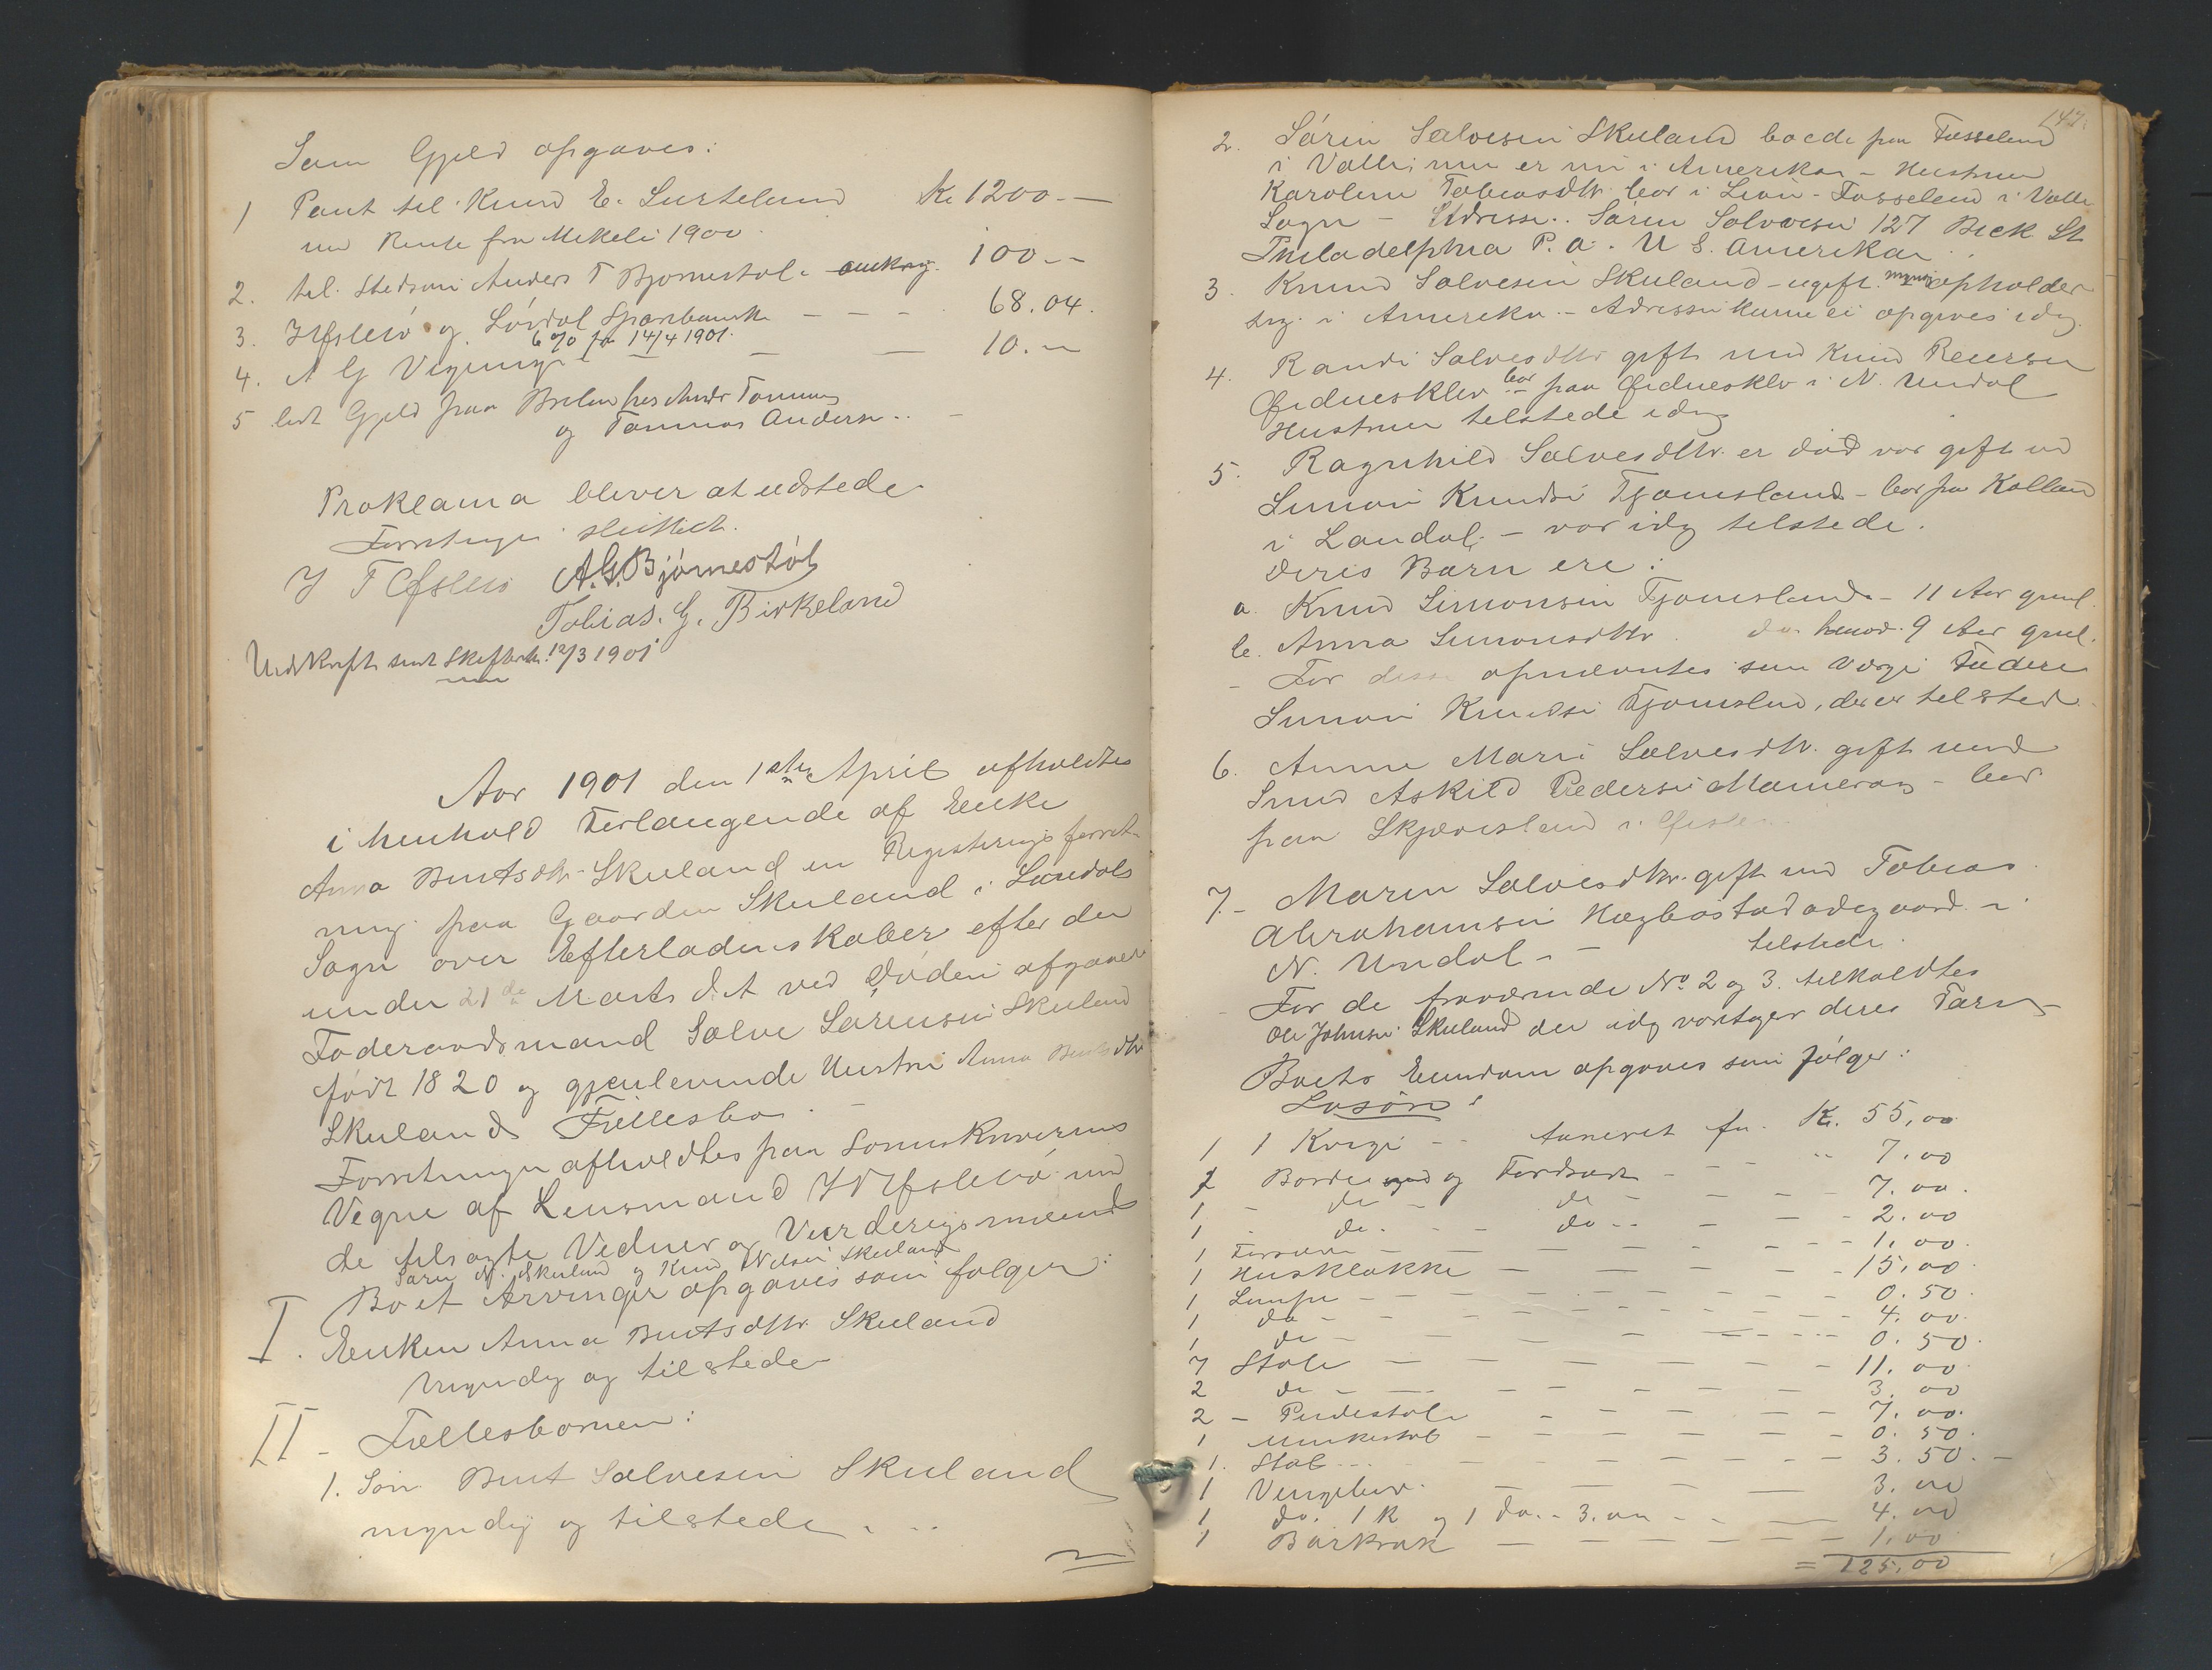 Som Gjeld opgaves:
1 Pant til Knud E. Surtelund Kr 1200.—
med Rente fra Mikeli 1900.
2. til Stedsøn Anders T Bjørnestøl omkrg. 100.—
3. Øfslebø og Løvdal Sparebank — — — 68.04.
6 % fra 14/4 1901.
4. A G Vigmyr — — — 10.—
5 lidt Gjeld paa hos Anders Tommas
og Tommas Andersn .. —
Proklama bliver at udstede
Forretningen sluttet.
J T Øfslebø A. G. Bjørnestøl
Tobias. G. Birkeland
Udskrift sendt Skifterett. 12/3 1901
Aar 1901 den 1ste April afholdtes
i henhold Forlangende af Enke
Anna Berntsdtr Skuland en Registeringsforret-
ning paa Gaarden Skuland i Laudals
Sogn over Efterladenskaber efter den
under 21de Marts d. A ved Døden afgaaede
Føderaadsmand Salve Sørensen Skuland
født 1820 og gjenlevende Hustru Anna Berntsdtr
Skulands Fællesbo. —
Forretningen afholdtes paa Sorenskriverens
Vegne af Lensmand J T Øfslebø med
de tilsagte Vidner og Vurderingsmænd
Søren N. Skuland og Knud Nilsen Skuland
I Boet Arvinger opgaves som følger:
. Enken Anna Berntsdtr Skuland
myndig og tilstede
II — Fællesbørnen:
1. Søn Bernt Salvesen Skuland
myndig og tilstede. ..
147.
2. Sørin Salvesen Skuland boede paa Fosseland
i Valle, men er nu i Amerika — Hustruen
Karoline Tobiasdtr bor i Lian - Fosseland i Valle
Sogn — Adresse.. Sørin Salvesen 127 Beck St
Philadelphia P. a. U S. Amerika .
3. Knud Salvesen Skuland — ugift. myndig opholder
sig i Amerika. — Adressen kunne ei opgives idag.
4. Randi Salvesdtr gift med Knud Reiersen
Øidneskleiv bor paa Øidneskleiv i N. Undal
Hustruen tilstede idag
5. Ragnhild Salvesdtr. er død var gift med
Simon Knudsen Tjomsland — bor paa Kolland
i Laudal; — var idag tilstede.
deres Børn ere:
a. Knud Simonsen Tjomsland — 11 Aar gml.
b. Anna Simonsdtr . do. henved 9 Aar gml.
— For disse opnævntes som Værge Faderen
Simon Knudsen Tjomsland, der er tilsted
6. Anne Marie Salvesdtr. gift med
Smed Askild Pedersen — bor
paa Skjævesland i Øfslebø
7. — Maren Salvesdtr. gift med Tobias
Abrahamsen Hægbostad ødegaard i
N. Undal — — tilstede.
For de fraværende No 2 og 3. tilkaldtes
Ole Johnsen Skuland der idag varetager deres Tarv
Boets Eiendom opgaves som følger:
Løsøre:
1 1 Kvige — — taxeret for Kr. 55,00
1 Bordu og — — — " 7.00
1 — do — do — — — — 7.00.
1 . do. — — do — — — — 2.00
1 — — — — — — 1,00.
1 Husklokke — — — — — 15,00.
1 Lampe — — — — — — — 0.50.
1 do — — — — — — 4.00.
1 do — — — — — — 0.50.
7 Stole — — — — — — 11.00.
2 do — — — — — — 3.00
2 — Pindestole — — — — — 7.00.
1 — — — — — — 0.50.
1. Stol — — — — — — — 3.50.—
1 — — — — 3.00
1 do. 1 K og 1 do. — 3.00 — — — 4.00
1 — — — — — — 1.00
= 125,00